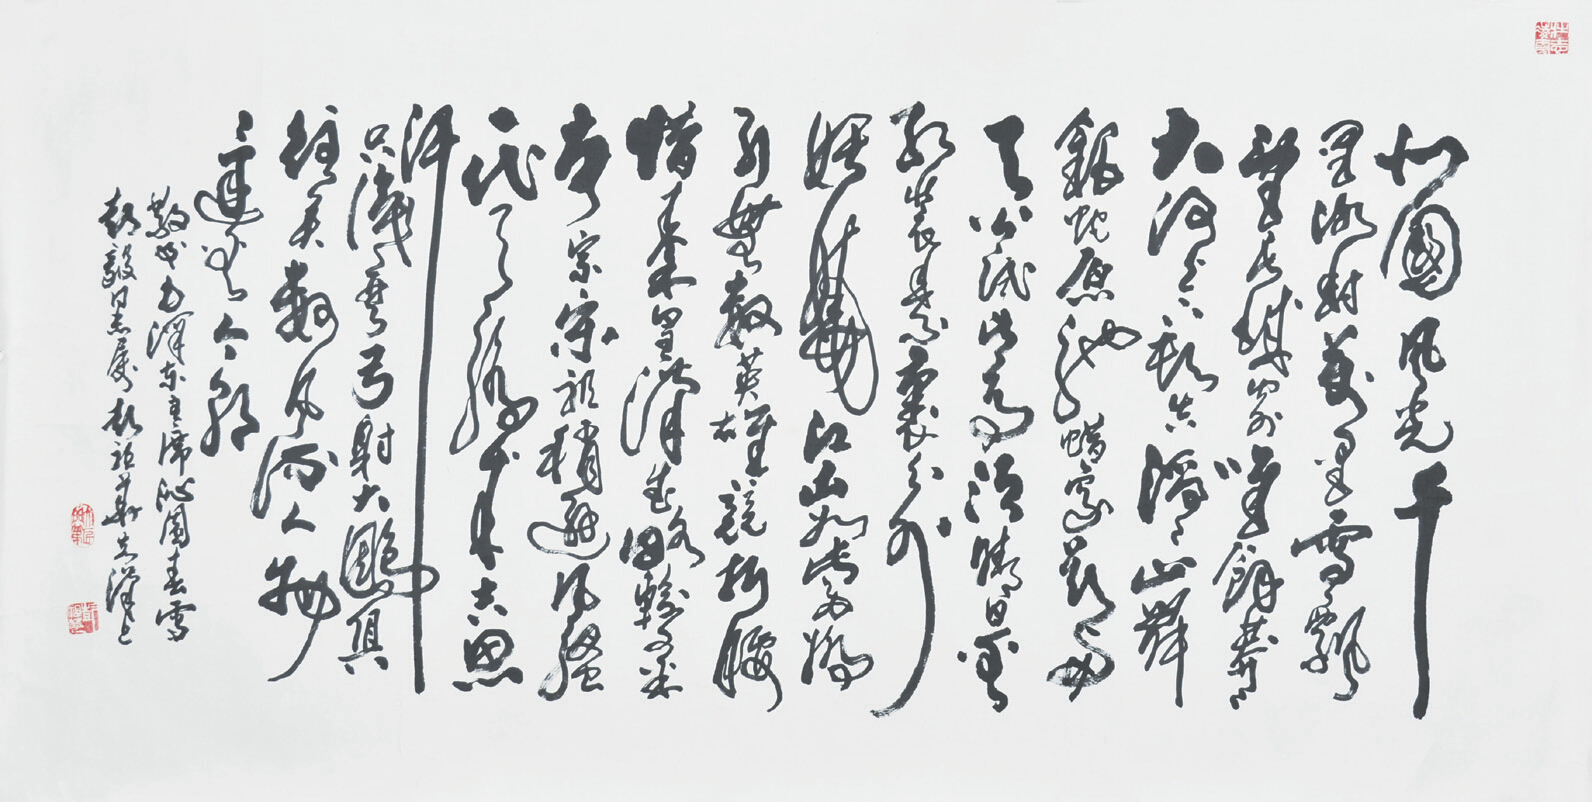 北國風光千
里冰封萬里雪飄
望長城內外唯餘莽莽
大河上下頓失滔滔山舞
銀蛇原馳蠟象欲與
天公試比高須晴日看
紅裝素裹分外
妖嬈江山如此多嬌
引無數英雄競折腰
惜秦皇漢武略輸文采
唐宗宋祖稍遜風騷
一代天驕成吉思
汗
只識彎弓射大鵰俱
往矣數風流人物
還看今朝
敬書毛澤東主席沁園春雪
毅同志屬